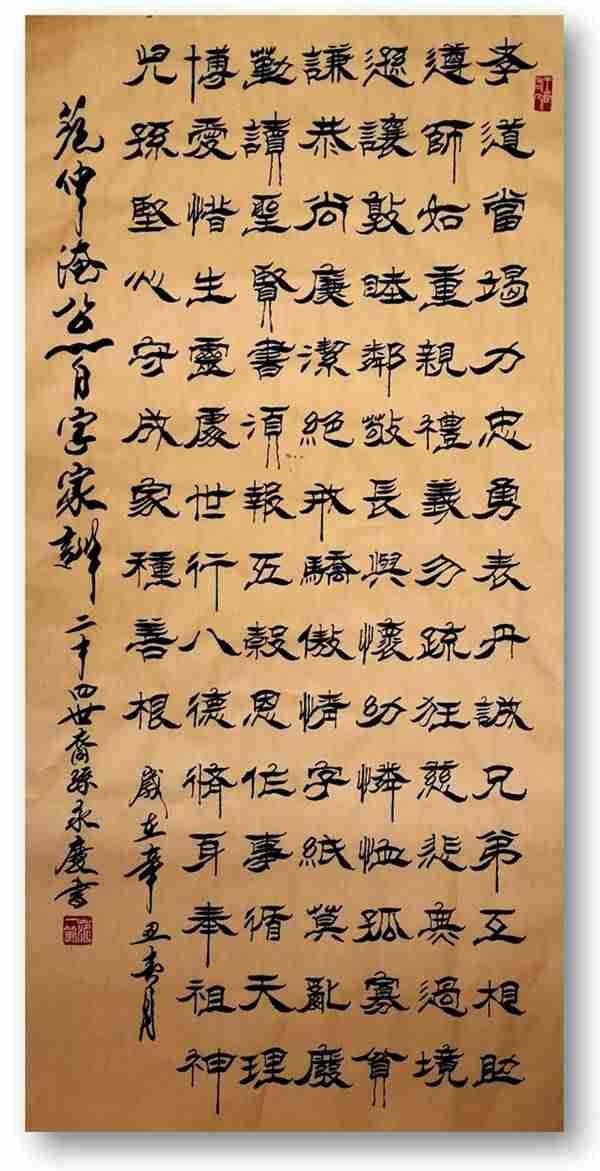 孝道當竭力忠勇表丹誠兄弟互相助
遵師如重親禮義勿疏狂慈悲無過境
遜讓敦睦鄰敬長與懷幼憐恤孤寡貧
謙恭尚廉潔絕戒驕傲情字紙莫亂廢
勤讀聖賢書須報五穀恩作事循天理
博愛惜生靈處世行八德脩身奉祖神
兒孫堅心守成家種善根 歲在辛丑春月
范仲淹公百字家訓 二十四世裔孫永慶書